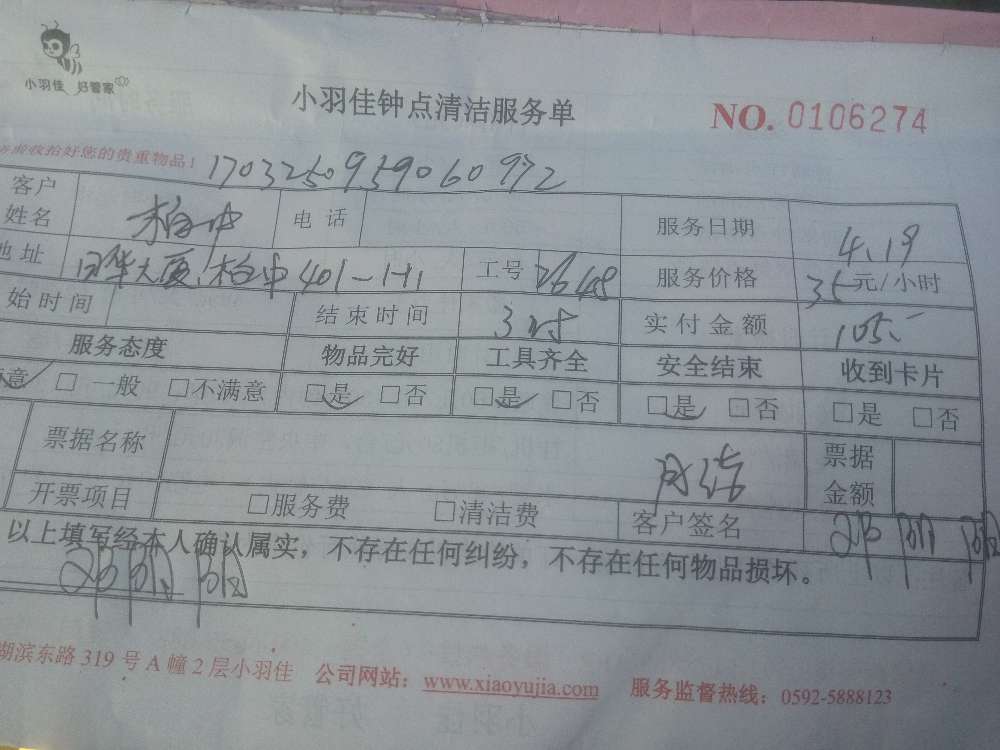 小羽佳 好管家
小羽佳钟点清洁服务单
NO. 0106274
收拾好您的贵重物品！
1703250959060972
客户姓名 柏中 电话 服务日期 4.19
地址 日华大厦 柏中401-1+1 工号 服务价格 35元/小时
始时间 结束时间 3 实付金额 105
服务态度 物品完好 工具齐全 安全结束 收到卡片
意 □一般 □不满意 □是 □否 □是 □否 □是 □否 □是 □否
票据名称 月结 票据金额
开票项目 □服务费 □清洁费 客户签名
以上填写经本人确认属实，不存在任何纠纷，不存在任何物品损坏。
湖滨东路 319 号 A 幢 2 层小羽佳 公司网站：www.xiaoyujia.com 服务监督热线：0592-5888123